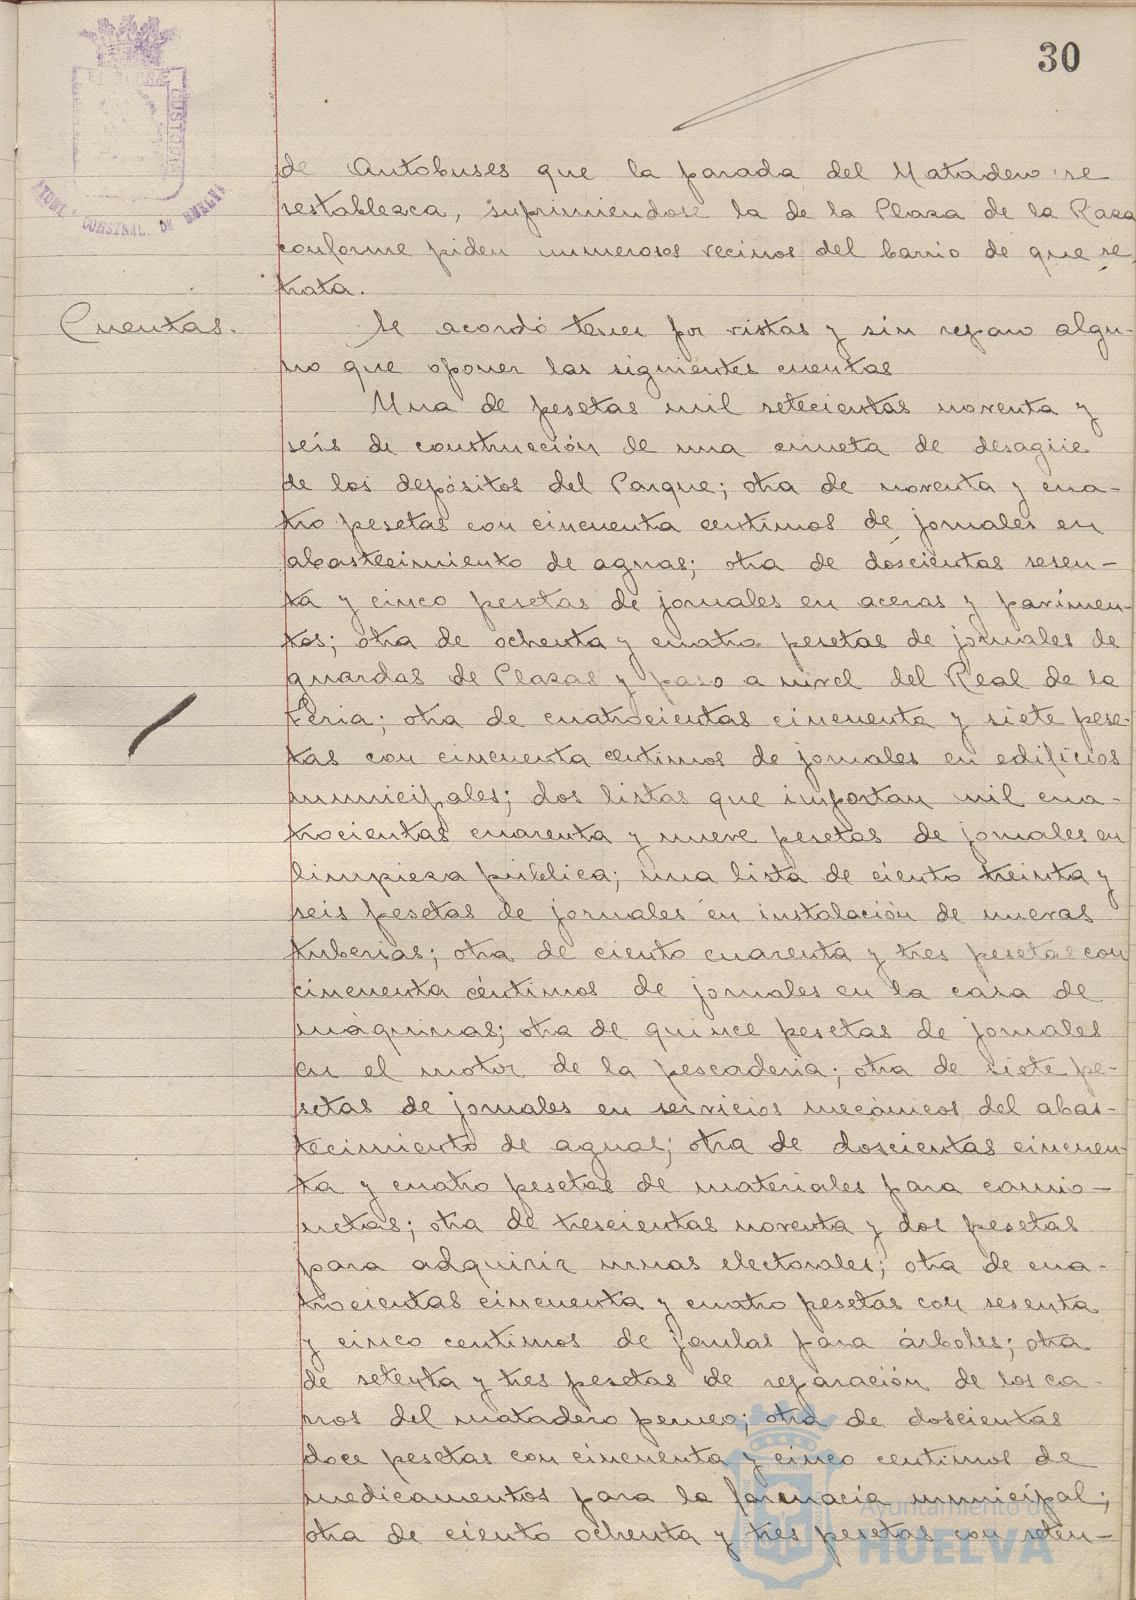 30
de Autobuses que la parada del Matadero se
restablezca, suprimiendose la de la Plaza de la Raza
conforme piden numerosos vecinos del barrio de que se
trata.
Cuentas.
Se acordó tener por vistas y sin reparo algu-
no que oponer las siguientes cuentas
Una de pesetas mil setecientas noventa y
seis de construcción de una cuneta de desagüe
de los depósitos del Parque; otra de noventa y cua-
tro pesetas con cincuenta centimos de jornales en
abastecimiento de aguas; otra de doscientas sesen-
ta y cinco pesetas de jornales en aceras y pavimen-
tos; otra de ochenta y cuatro pesetas de jornales de
guardas de Plazas y paso a nivel del Real de la
Feria; otra de cuatrocientas cincuenta y siete pese-
tas con cincuenta centimos de jornales en edificios
municipales; dos listas que importan mil cua-
trocientas cuarenta y nueve pesetas de jornales en
limpieza pública; una lista de ciento treinta y
seis pesetas de jornales en instalación de nuevas
tuberias; otra de ciento cuarenta y tres pesetas con
cincuenta céntimos de jornales en la casa de
máquinas; otra de quince pesetas de jornales
en el motor de la pescaderia; otra de siete pe-
setas de jornales en servicios mecánicos del abas-
tecimiento de aguas; otra de doscientas cincuen-
ta y cuatro pesetas de materiales para camio-
netas; otra de trescientas noventa y dos pesetas
para adquirir urnas electorales; otra de cua-
trocientas cincuenta y cuatro pesetas con sesenta
y cinco centimos de jaulas para árboles; otra
de setenta y tres pesetas de reparación de los ca-
rros del matadero perneo; otra de doscientas
doce pesetas con cincuenta y cinco centimos de
medicamentos para la farmacia municipal;
otra de ciento ochenta y tres pesetas con seten-
Ayuntamiento de
HUELVA